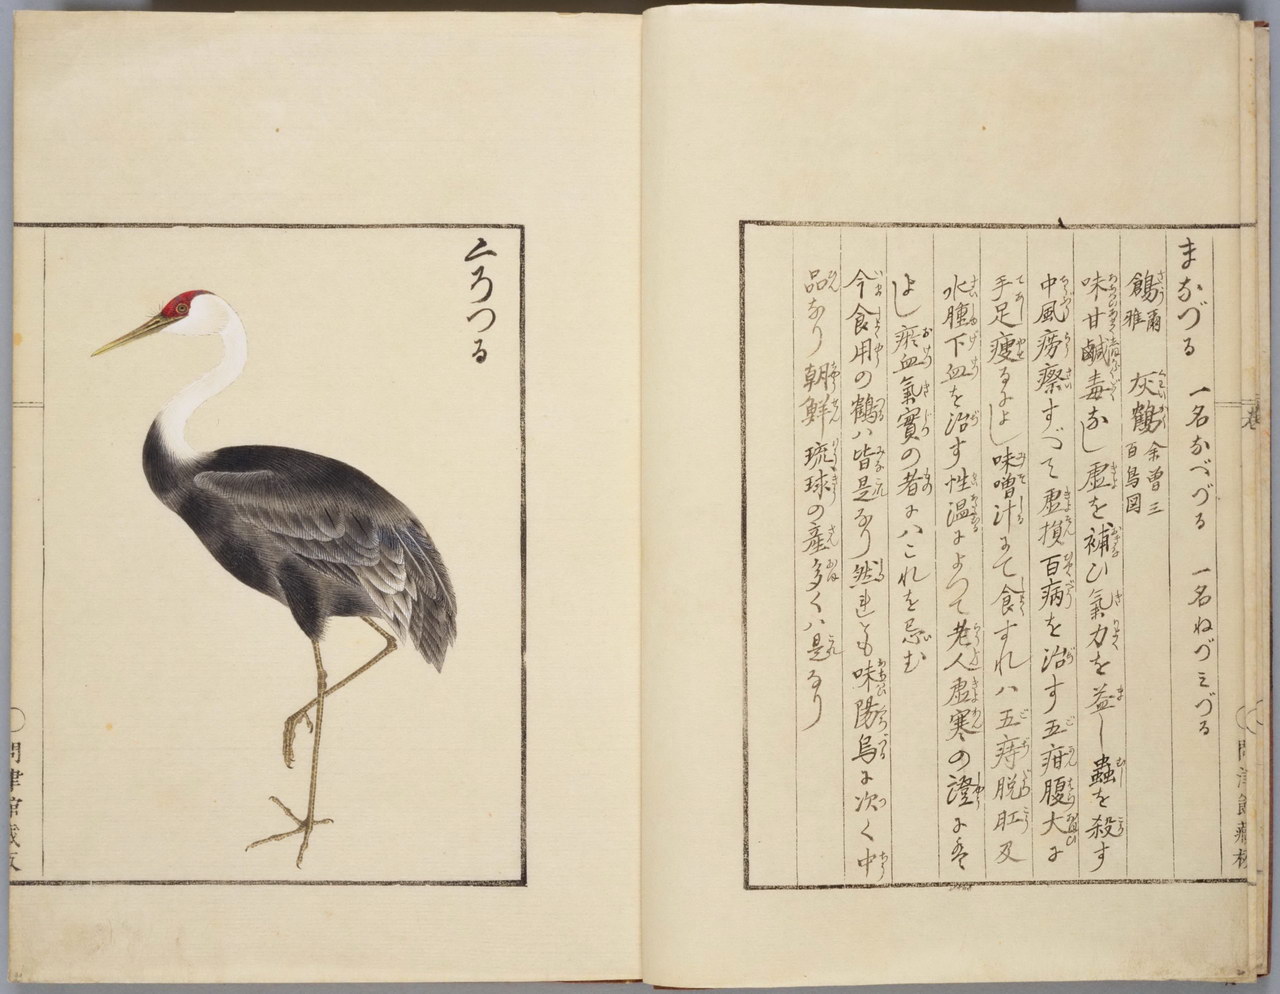 まなづる 一名なべづる 一名ねづミづる
鶬爾雅 灰鶴余曽三百鳥図
味甘鹹毒なし虚を補ひ氣力を益し蟲を殺す
中風痨瘵すべて虚損百病を治す五疳腹大に
手足痩るによし味噌汁にて食すれハ五痔脱肛及
水腫下血を治す性温によつて老人虚寒の證に
よし瘀血氣實の者にハこれを忌む
今食用の鶴ハ皆是なり然れとも味陽烏に次く中
品なり朝鮮琉球の産多くハ是なり
くろつる
問津館蔵